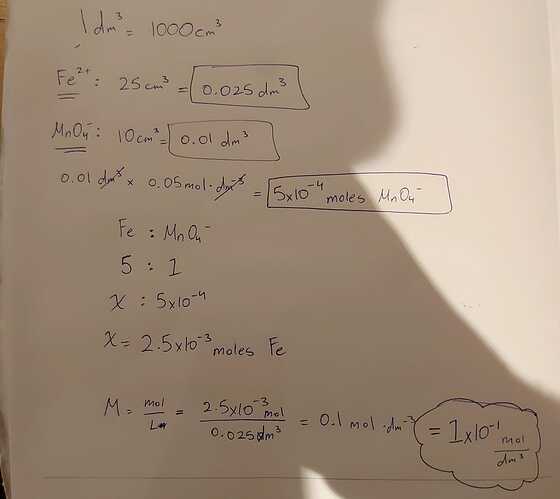 1 dm³ = 1000cm³
Fe²⁺: 25cm³ = 0.025 dm³
MnO₄⁻: 10cm³ = 0.01 dm³
0.01 dm³ × 0.05mol·dm⁻³ = 5×10⁻⁴ moles MnO₄⁻
Fe : MnO₄⁻
5 : 1
x : 5×10⁻⁴
x = 2.5×10⁻³ moles Fe
M = mol/L = 2.5×10⁻³ mol/0.025dm³ = 0.1 mol·dm⁻³ = 1×10⁻¹ mol/dm³